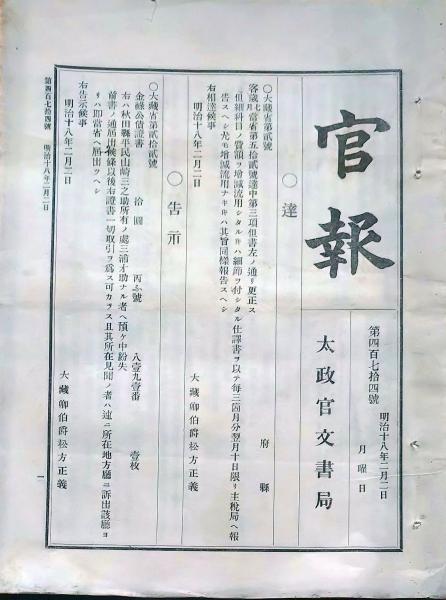 官報
第四百七拾四號
明治十八年二月二日
月曜日
太政官文書局
〇達
〇大藏省第貳號
府縣
客歲七月當省第五拾貳號達中第三項但書左ノ通リ更正ス
但細科目ノ費額ヲ增減流用シタルキハ細節ヲ付シタル仕譯書ヲ以テ每三箇月分翌月十日限リ主稅局ヘ報
告スヘシ尤モ增減流用ナキキハ其旨同樣報告スヘシ
右相達候事
明治十八年二月二日
大藏卿伯爵松方正義
〇告示
〇大藏省第拾貳號
金祿公債證書 拾圓 丙ふ號 八壹九壹番 壹枚
右ハ秋田縣平民山崎三之助所有ノ處三浦才助ナル者ヘ預ケ中紛失
前書ノ通屆出候條以後右證書一切取引ヲ爲ス可カラス且其所在見聞ノ者ハ速ニ所在地方廳ニ訴出該廳ヨ
リハ卽當省ヘ屆出ツヘシ
右告示候事
明治十八年二月二日
大藏卿伯爵松方正義
第四百七拾四號 明治十八年二月二日
一